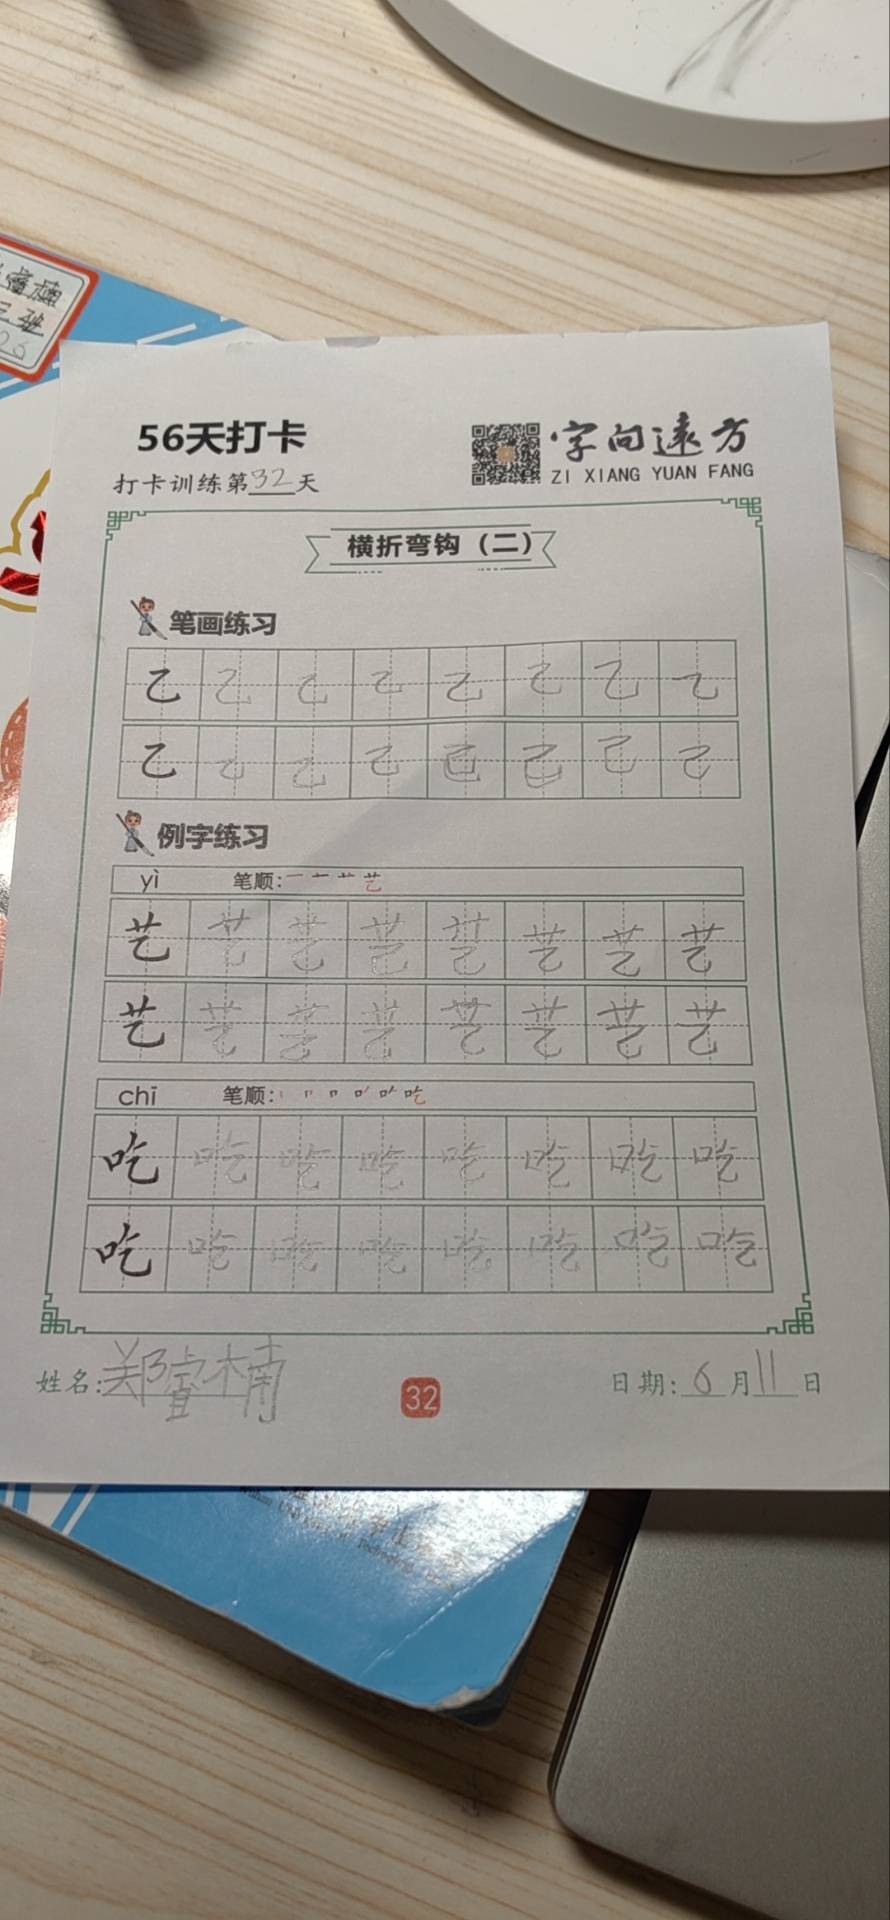 56天打卡
打卡训练第32天
字向遠方
ZI XIANG YUAN FANG
横折弯钩（二）
笔画练习
乙 乙 乙 乙 乙 乙 乙 乙
乙 乙 乙 乙 乙 乙 乙 乙
例字练习
yì 笔顺：一 艺
艺 艺 艺 艺 艺 艺 艺 艺
艺 艺 艺 艺 艺 艺 艺 艺
chī 笔顺：丨 口 吃
吃 吃 吃 吃 吃 吃 吃 吃
吃 吃 吃 吃 吃 吃 吃 吃
姓名：郑睿楠
32
日期：6月11日